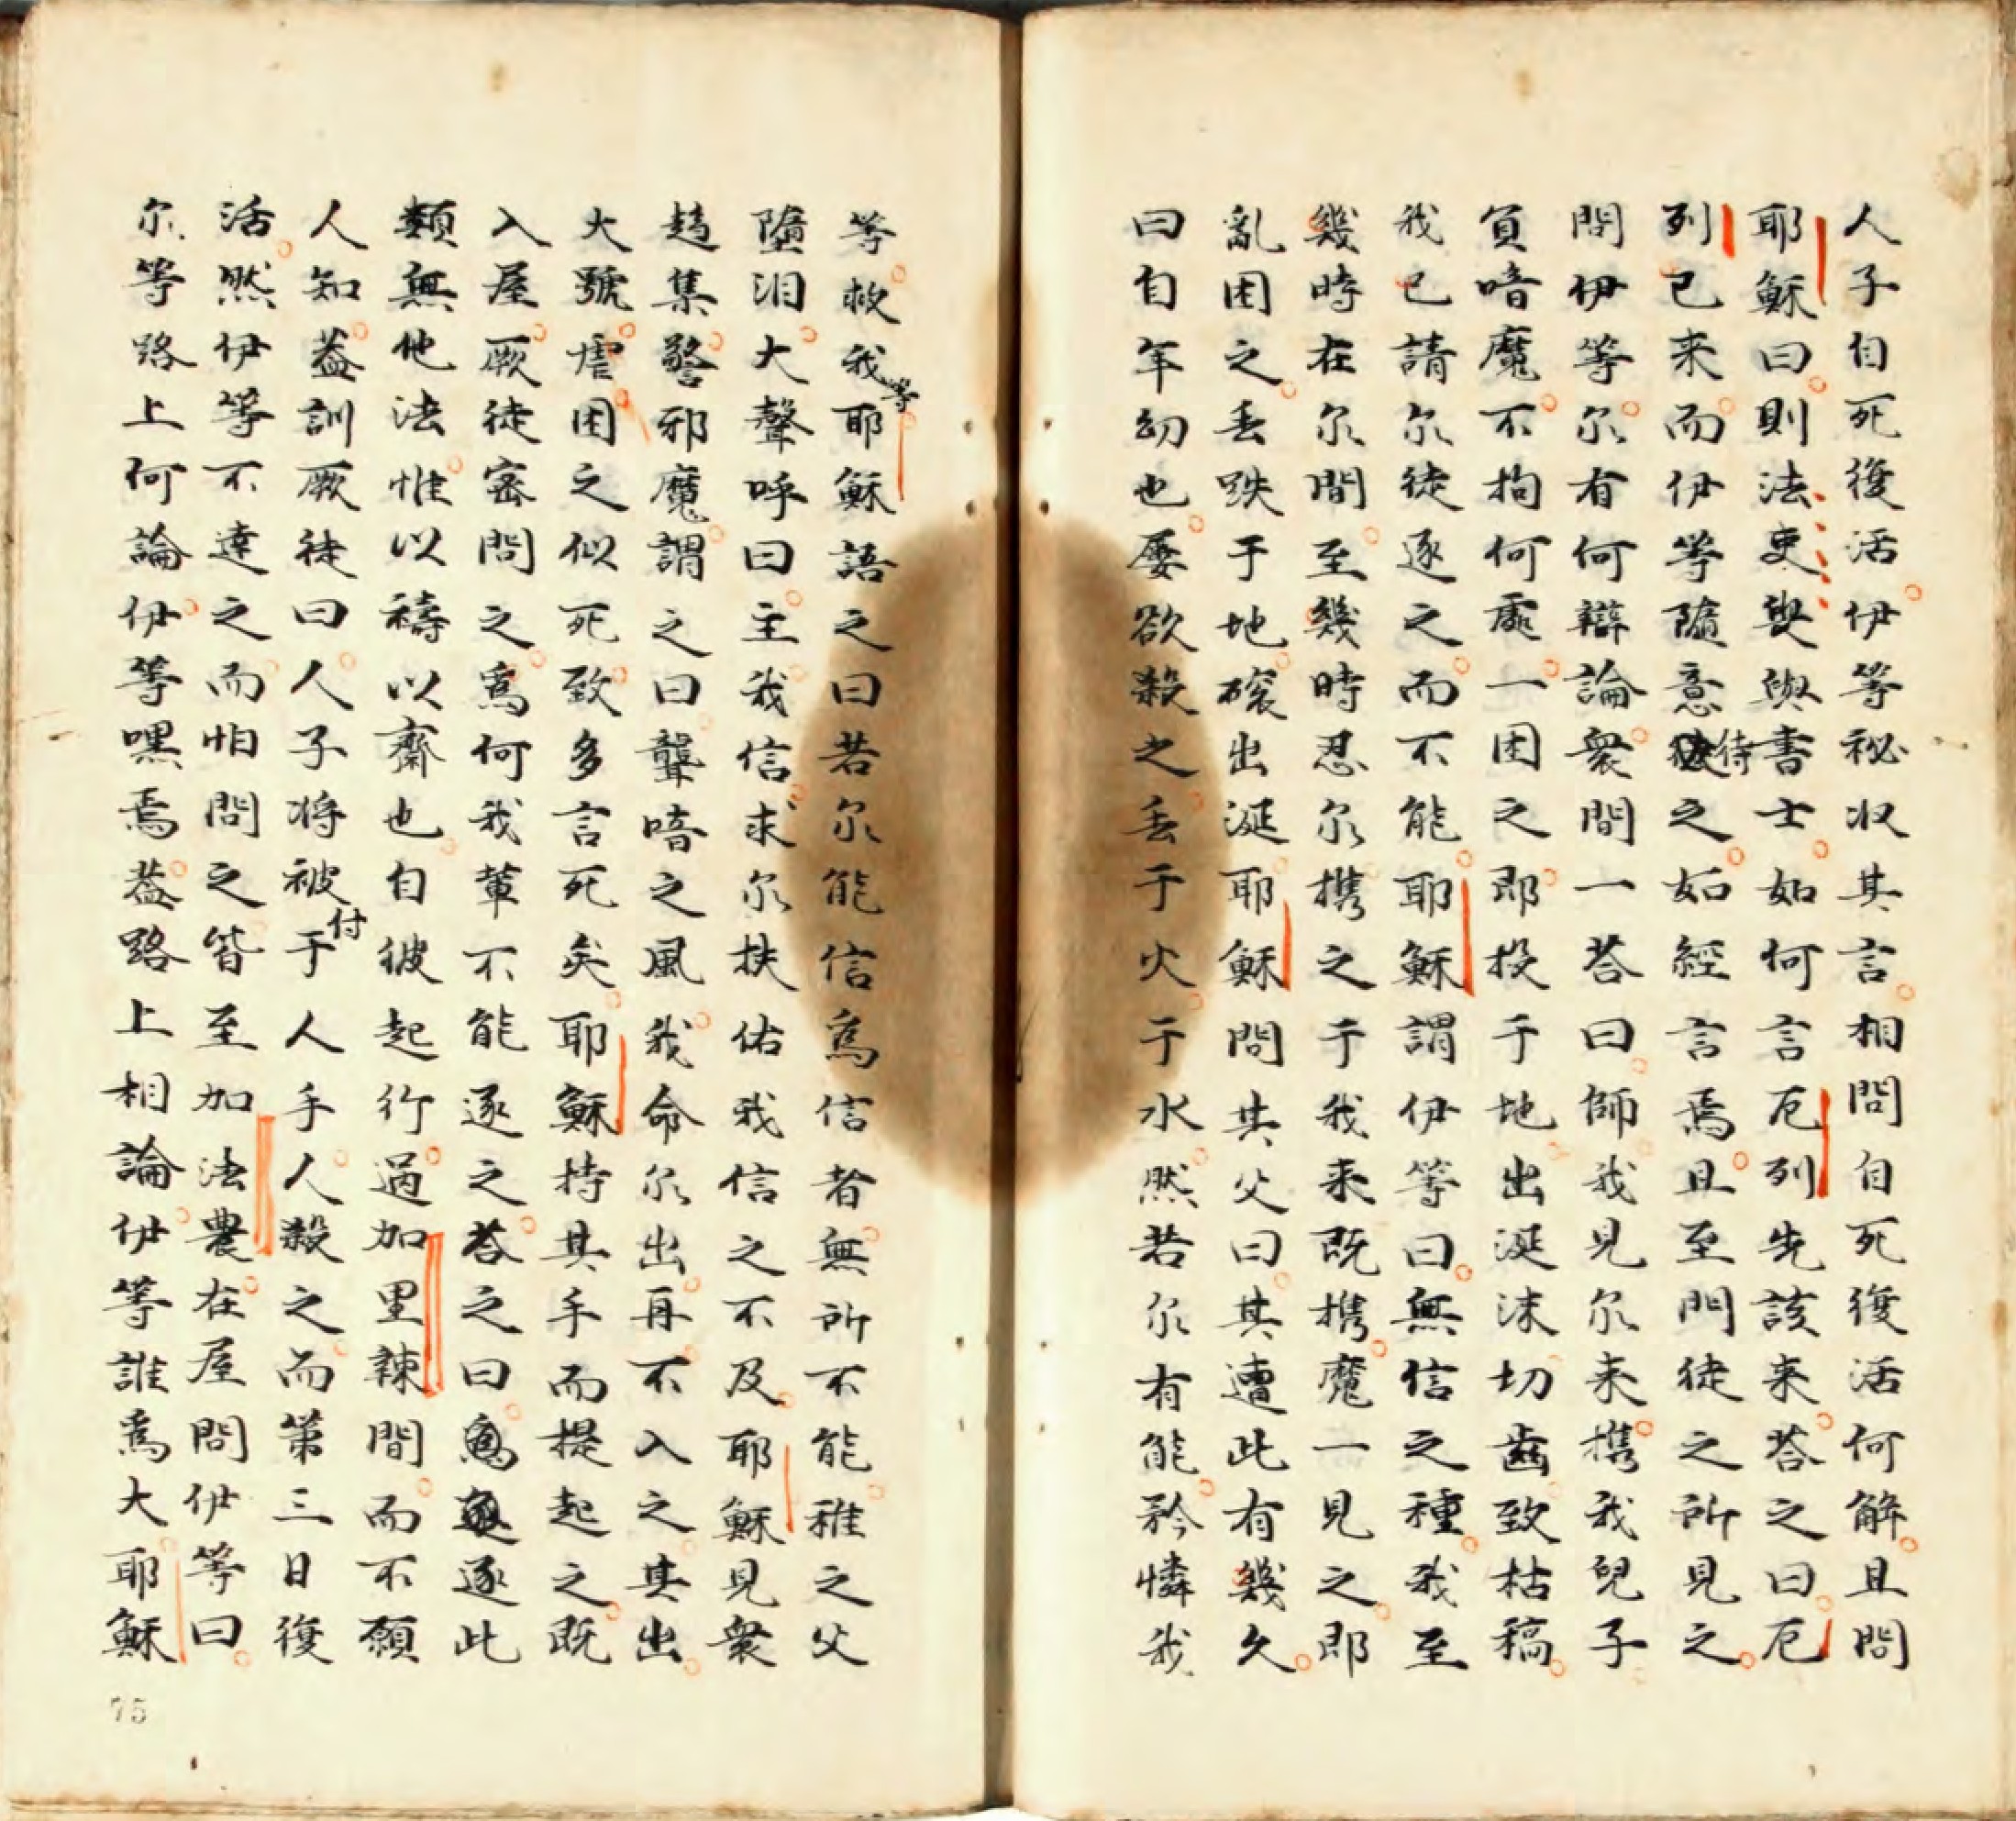 人子自死復活伊等祕收其言相問自死復活何解且問
耶穌曰則法吏與書士如何言厄列先該來荅之曰厄
列已来而伊等隨意待之如經言焉且至門徒之所見之
問伊等尔有何辯論衆間一荅曰師我見尔来攜我兒子
負喑魔不拘何處一困之即投于地出涎沫切齒致枯稿
我已請尔徒逐之而不能耶穌謂伊等曰無信之種我至
幾時在尔間至幾時忍尔攜之于我来既攜魔一見之即
亂困之丟跌于地磙出涎耶穌問其父曰其遭此有幾久
曰自年幼也屢欲殺之丟于火于水然若尔有能矜憐我
等救我等耶穌語之曰若尔能信焉信者無所不能稚之父
墮泪大聲呼曰主我信求尔扶佑我信之不及耶穌見衆
趋集警邪魔謂之曰聾喑之風我命尔出再不入之其出
大號虐困之似死致多言死矣耶穌持其手而提起之既
入屋厥徒密問之爲何我輩不能逐之荅之曰逐此
類無他法惟以禱以齋也自彼起行過加里辣間而不願
人知葢訓厥徒曰人子将被付于人手人殺之而第三日復
活然伊等不達之而怕問之皆至加法農在屋問伊等曰
尔等路上何論伊等嘿焉葢路上相論伊等誰爲大耶穌
75